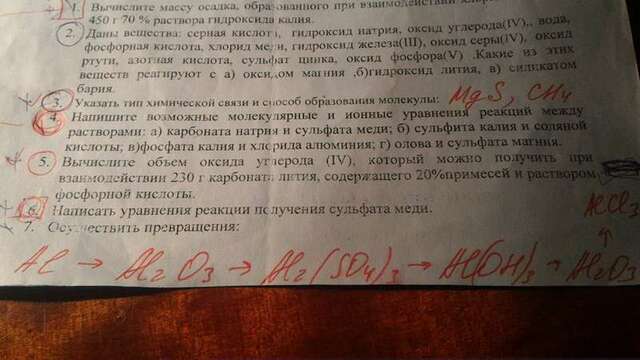 1. Вычислите массу осадка, образованного при взаимодействии
450 г 70 % раствора гидроксида калия.
2. Даны вещества: серная кислота, гидроксид натрия, оксид углерода(IV), вода,
фосфорная кислота, хлорид меди, гидроксид железа(III), оксид серы(IV), оксид
ртути, азотная кислота, сульфат цинка, оксид фосфора(V). Какие из этих
веществ реагируют с а) оксидом магния ,б)гидроксид лития, в) силикатом
бария.
3. Указать тип химической связи и способ образования молекулы: MgS, CH4
4. Напишите возможные молекулярные и ионные уравнения реакций между
растворами: а) карбоната натрия и сульфата меди; б) сульфита калия и соляной
кислоты, в)фосфата калия и хлорида алюминия; г) олова и сульфата магния.
5. Вычислите объем оксида углерода (IV), который можно получить при
взаимодействии 230 г карбоната лития, содержащего 20%примесей и раствором
фосфорной кислоты.
6. Написать уравнения реакции получения сульфата меди.
7. Осуществить превращения:
Al → Al2O3 → Al2(SO4)3 → Al(OH)3 → Al2O3